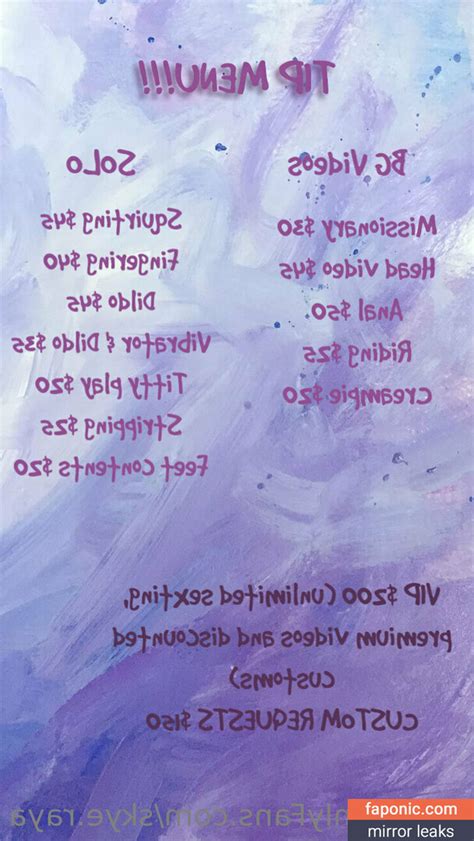 TIP MENU!!!
BG Videos
Missionary $30
Head video $45
Anal $50
Riding $25
Creampie $20
SoLo
Squirting $45
Fingering $40
Dildo $45
Vibrator & Dildo $35
Titty play $20
Stripping $25
Feet contents $20
VIP $200 (unlimited sexting,
premium videos and discounted
customs)
CUSTOM REQUESTS $150
nlyFans.com/skye.raya
faponic.com
mirror leaks